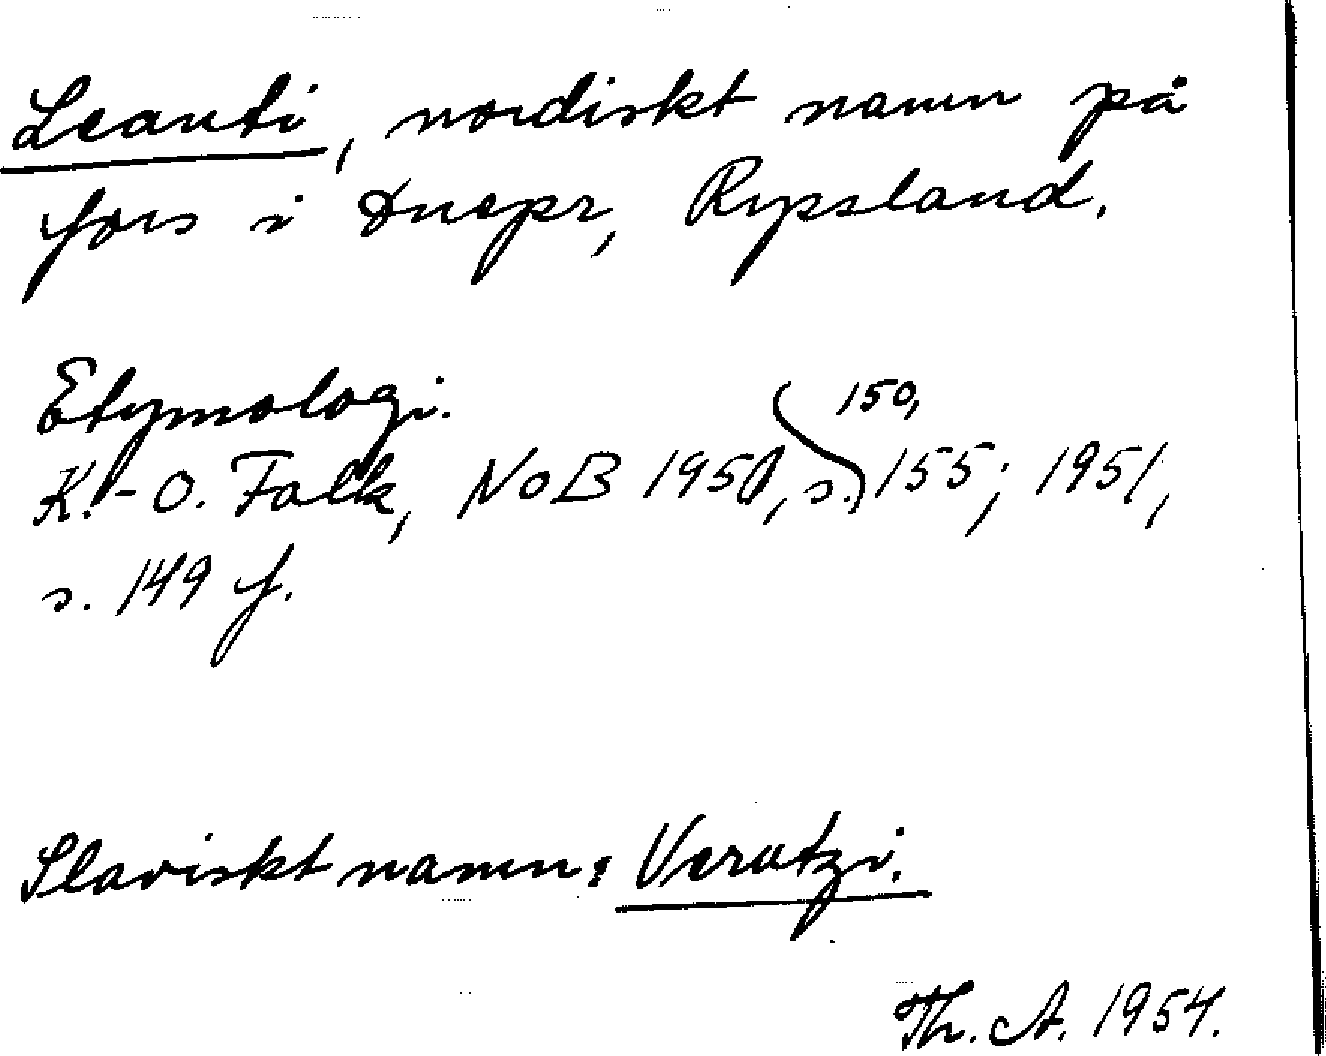 Leanti, nordiskt namn på
fors i Dnepr, Ryssland.
Etymologi.
K.-O. Falk, NoB 1950, s. 150, 155; 1951,
s. 149 f.
Slaviskt namn: Verutzi.
Th. A. 1954.